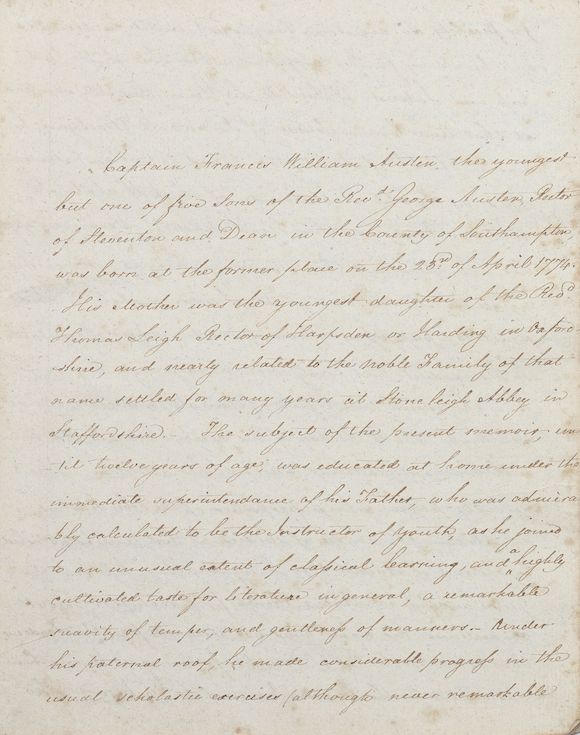 Captain Francis William Austen, the youngest
but one of five Sons of the Revd. George Austen, Rector
of Steventon and Dean in the County of Southampton,
was born at the former place on the 23rd. of April 1774.
His Mother was the youngest daughter of the Revd
Thomas Leigh Rector of Harpsden or Harding in Oxford-
-shire, and nearly related to the noble Family of that
name settled for many years at Stoneleigh Abbey in
Staffordshire. - The subject of the present memoir, un-
-til twelve years of age, was educated at home under the
immediate superintendance of his Father, who was admira-
bly calculated to be the Instructor of youth, as he joined
to an unusual extent of classical learning, and a highly
cultivated taste for literature in general, a remarkable
suavity of temper, and gentleness of manners. - Under
his paternal roof, he made considerable progress in the
usual scholastic exercises (although never remarkable